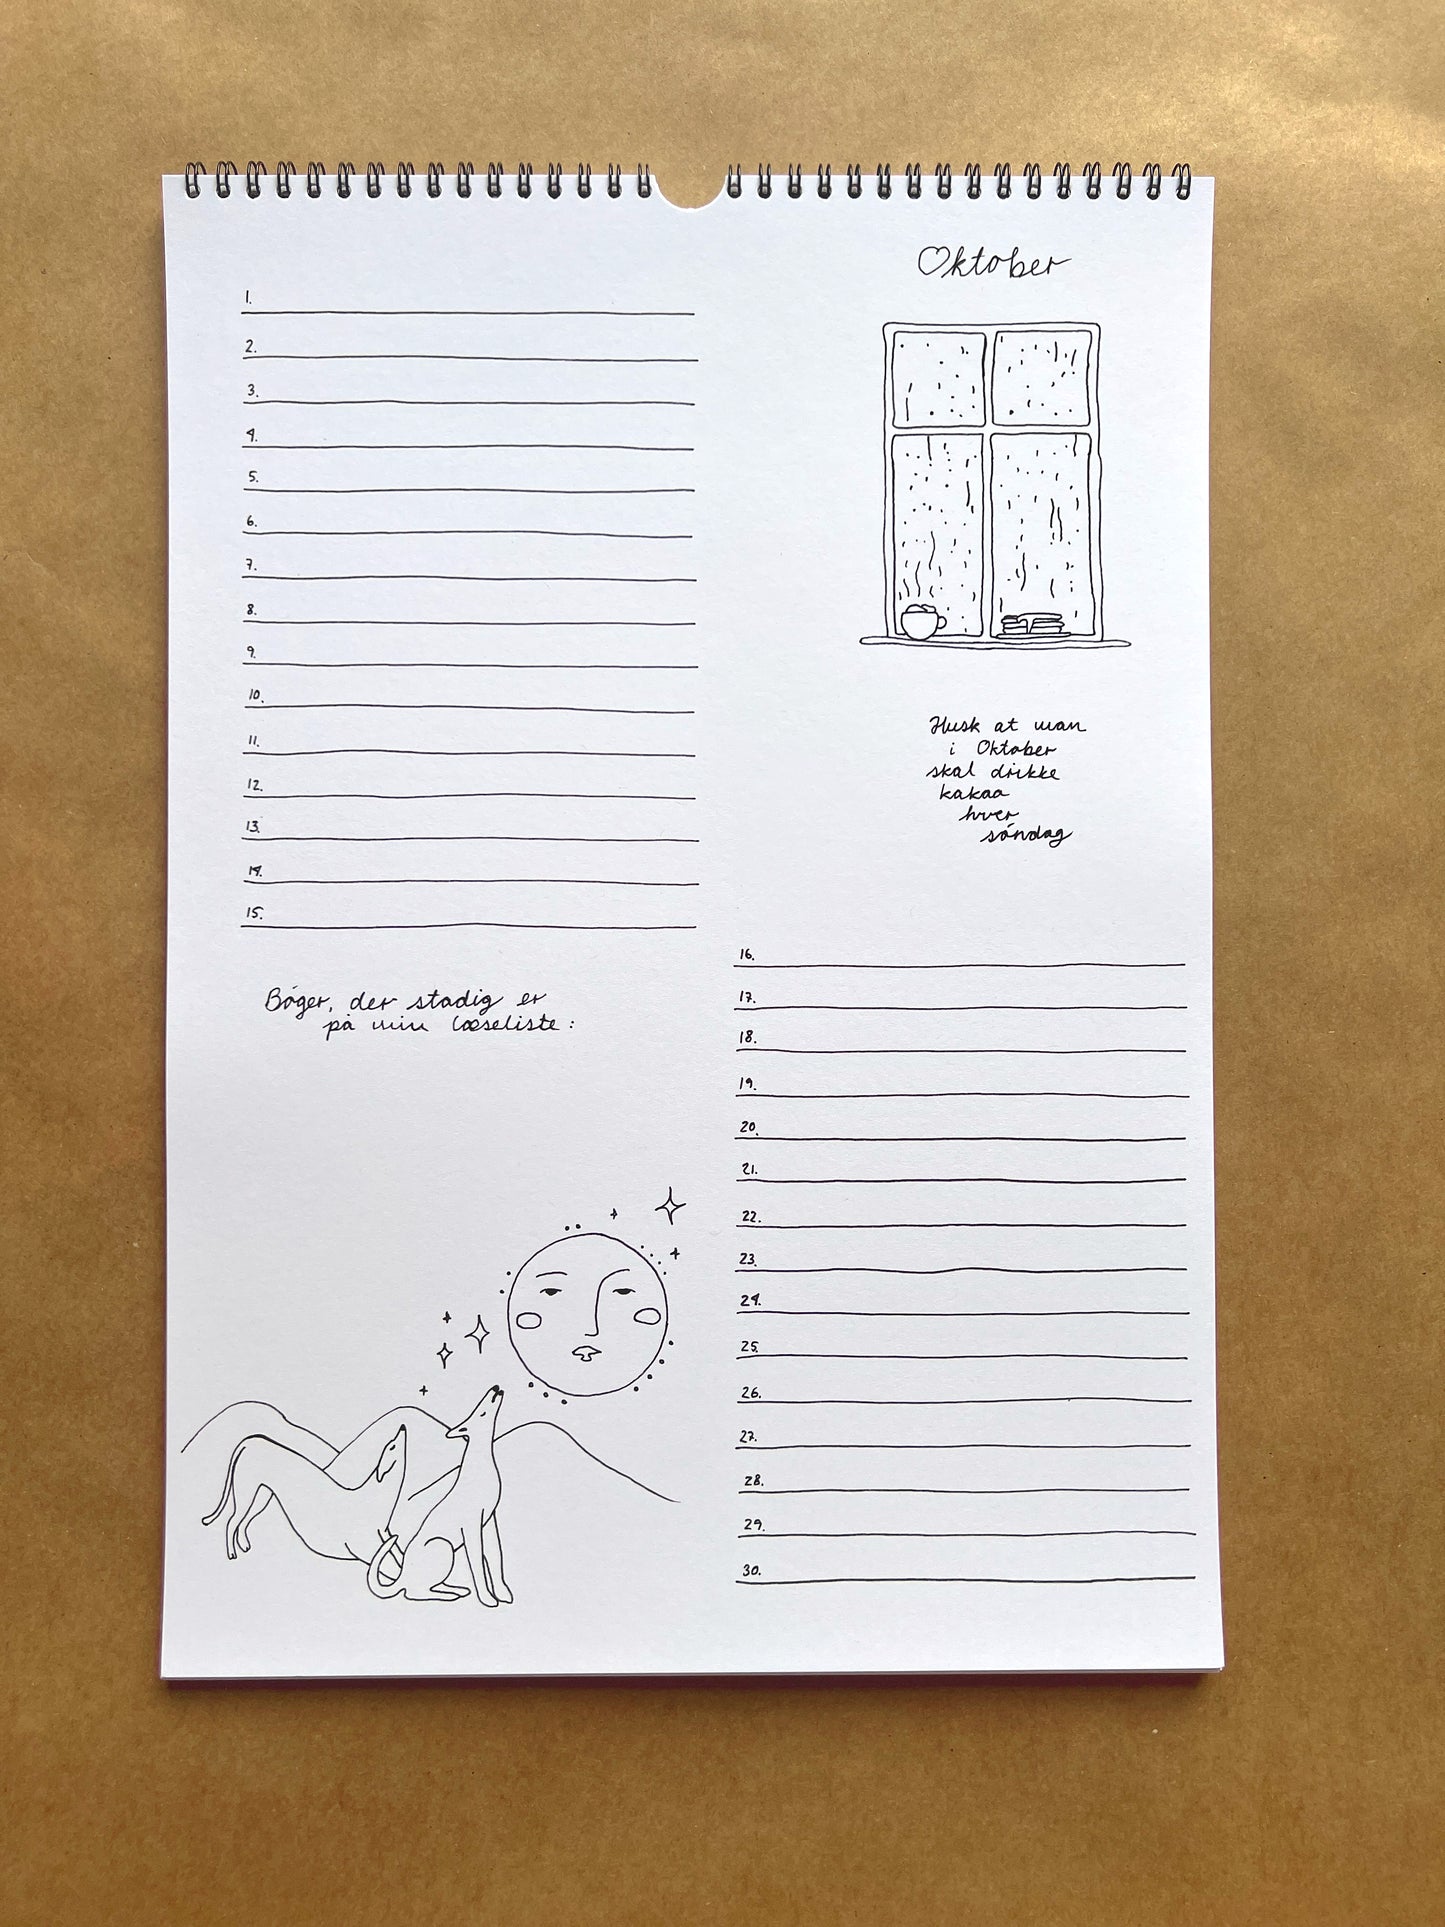 Oktober
1.
2.
3.
4.
5.
6.
7.
8.
9.
10.
11.
12.
13.
14.
15.
Husk at man
i Oktober
skal drikke
kakao
hver
søndag
Bøger, der stadig er
på min læseliste:
16.
17.
18.
19.
20.
21.
22.
23.
24.
25.
26.
27.
28.
29.
30.